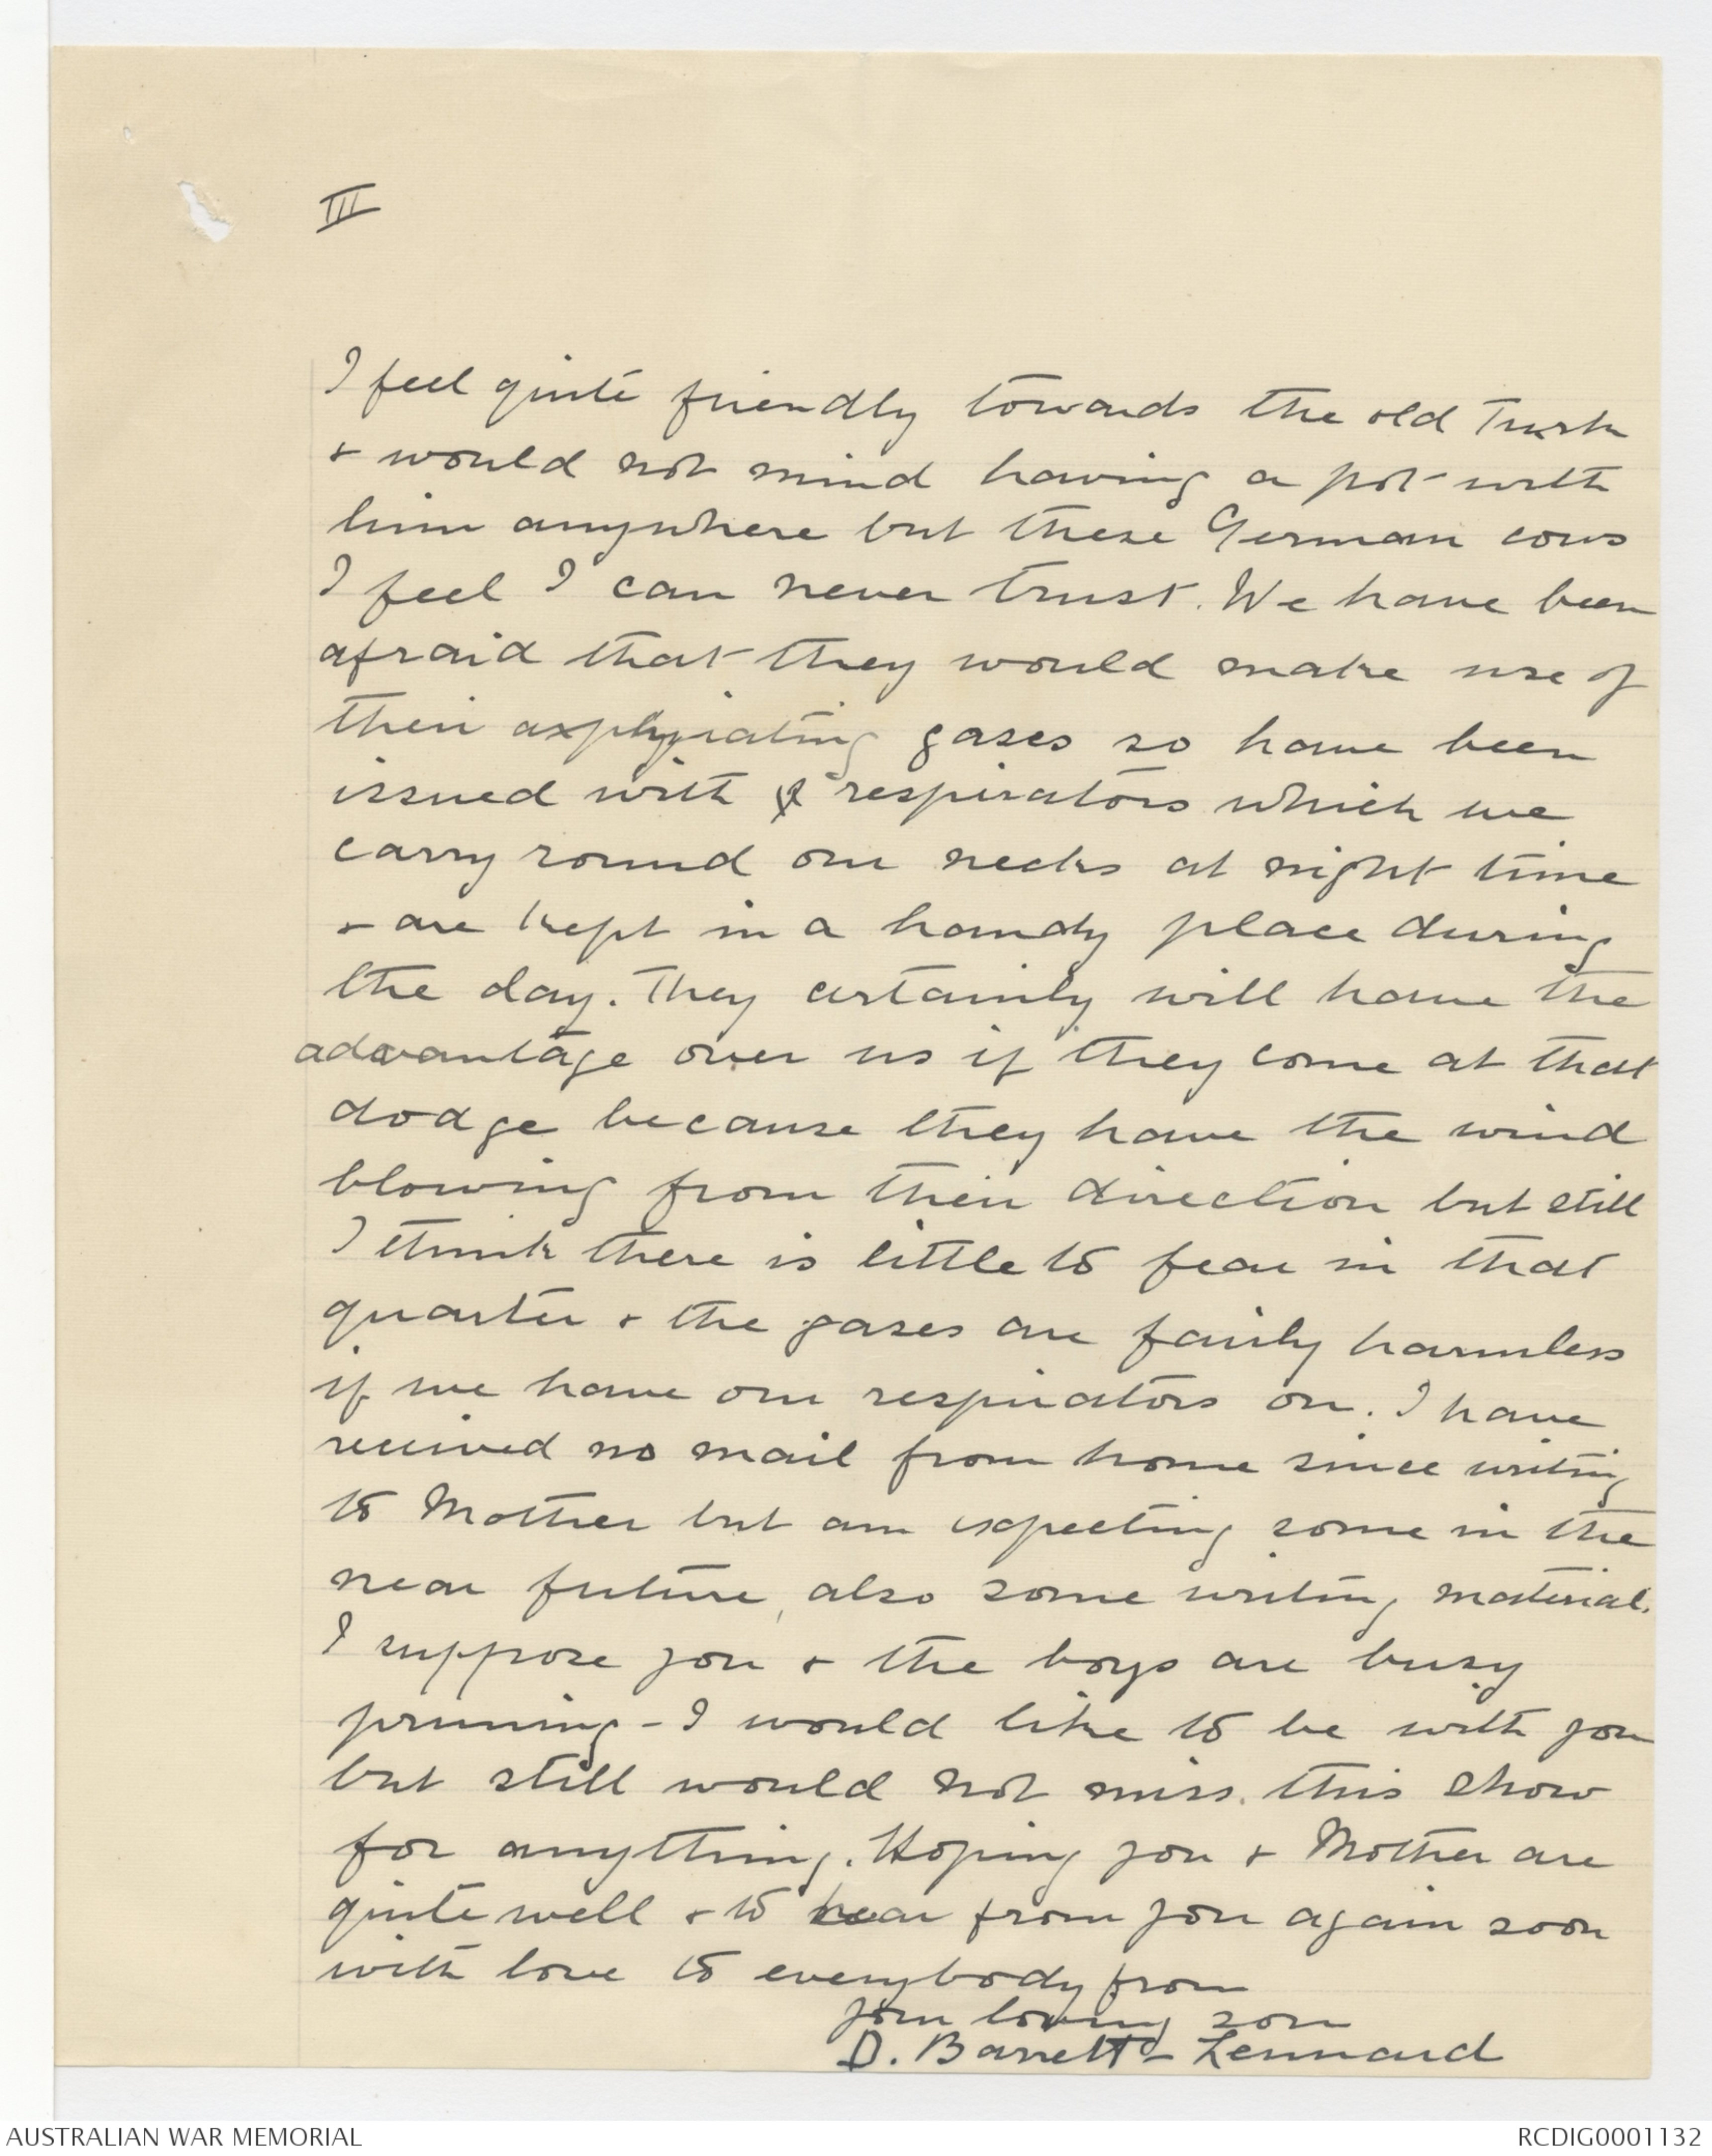 III
I feel quite friendly towards the old Turk
& would not mind having a pot with
him anywhere but these German cows
I feel I can never trust. We have been
afraid that they would make use of
their asphyxiating gases so have been
issued with respirators which we
carry round our necks at night time
& are kept in a handy place during
the day. They certainly will have the
advantage over us if they come at that
dodge because they have the wind
blowing from their direction but still
I think there is little to fear in that
quarter & the gases are fairly harmless
if we have our respirators on. I have
received no mail from home since writing
to Mother but am expecting some in the
near future, also some writing material.
I suppose you & the boys are busy
pruning - I would like to be with you
but still would not miss this show
for anything. Hoping you & Mother are
quite well & to hear from you again soon
with love to everybody from
your loving son
D. Barrett-Lennard
AUSTRALIAN WAR MEMORIAL
RCDIG0001132